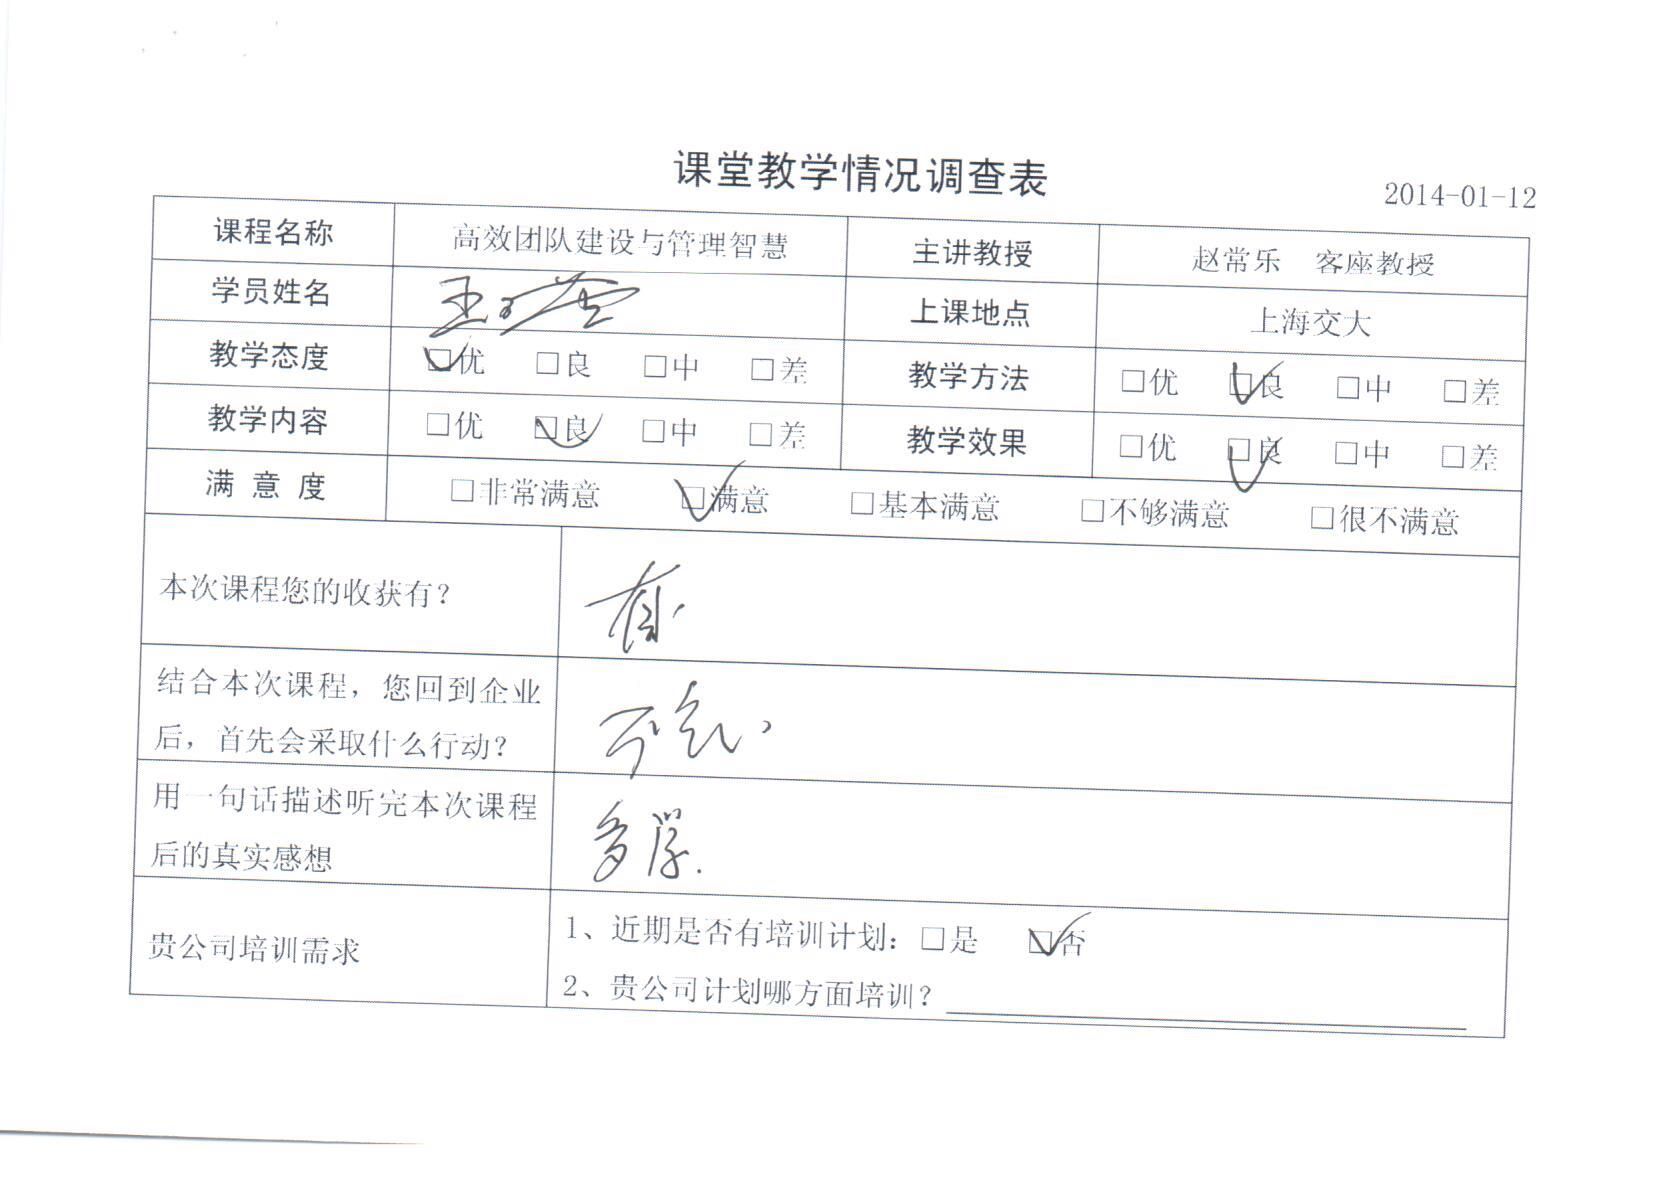 课堂教学情况调查表
2014-01-12
课程名称 高效团队建设与管理智慧 主讲教授 赵常乐 客座教授
学员姓名 王 上课地点 上海交大
教学态度 □优 □良 □中 □差 教学方法 □优 □良 □中 □差
教学内容 □优 □良 □中 □差 教学效果 □优 □良 □中 □差
满意度 □非常满意 □满意 □基本满意 □不够满意 □很不满意
本次课程您的收获有？
结合本次课程，您回到企业
后，首先会采取什么行动？
用一句话描述听完本次课程
后的真实感想
多学.
贵公司培训需求
1、近期是否有培训计划：□是 □否
2、贵公司计划哪方面培训？